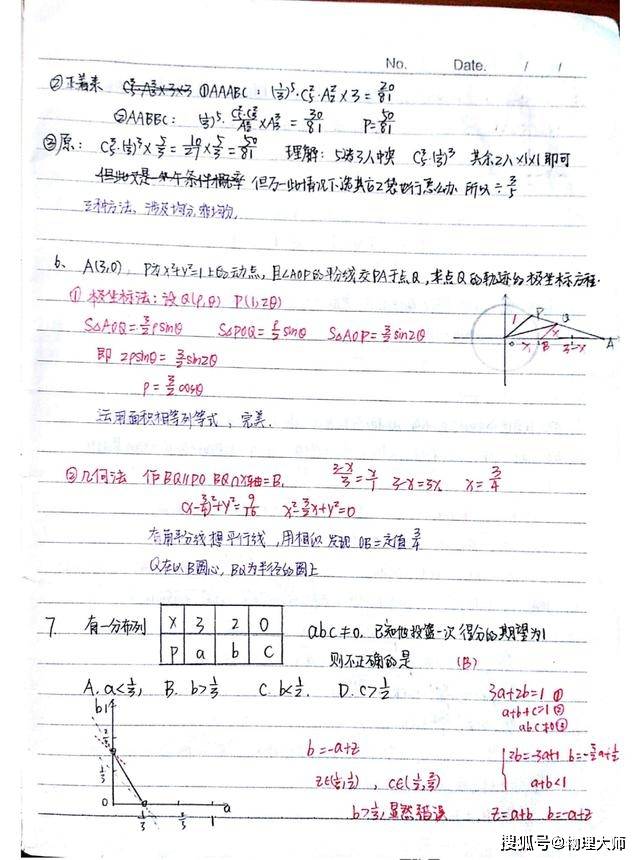 No. Date. / /
②正着来 C²₅·A²₂×3×3 ①AAABC：(1/3)⁵·C³₅·A²₂×3=20/81
②AABBC： (1/3)⁵·C²₅·C²₃/A²₂×A³₃=30/81 P=50/81
③原： C³₅·(1/3)³×5/3=10/27×5/3=50/81 理解：5选3入中央 C³₅(1/3)³ 其余2入×1×1即可
但此又是一个条件概率 所以÷3/5
三种方法，涉及均分
6、A(3,0)， P为x²+y²=1上的动点，且∠AOP的平分线交PA于点Q，求点Q的轨迹的极坐标方程.
① 极坐标法：设Q(ρ,θ) P(1,2θ)
S△AOQ=3/2ρsinθ S△POQ=ρ/2sinθ S△AOP=3/2sin2θ
即 2ρsinθ=3/2sin2θ
ρ=3/2cosθ
运用面积相等列等式，完美.
P Q 1 x O x B 3-x A
②几何法 作BQ∥PO BQ∩x轴=B. 3-x/3=x/1 3-x=3x x=3/4
(x-3/4)²+y²=9/16 x²-3/2x+y²=0
有角平分线想平行线，用相似 发现OB=定值3/4
Q在以B圆心，BQ为半径的圆上
7. 有一分布列 X 3 2 0
P a b c
abc≠0. 已知他投篮一次得分的期望为1
则不正确的是 (B)
A. a<1/3， B. b>1/3 C. b<1/2. D. c>1/2
3a+2b=1 ①
a+b+c=1 ②
abc≠0 ③
b 1 1/3 0 1/3 1 a
b=-a+z
z∈(1/3,1/2) ，c∈(1/2,2/3)
b>1/3,显然错误
2b=-3a+1 b=-3/2a+1/2
a+b<1
z=a+b b=-a+z
搜狐号@物理大师